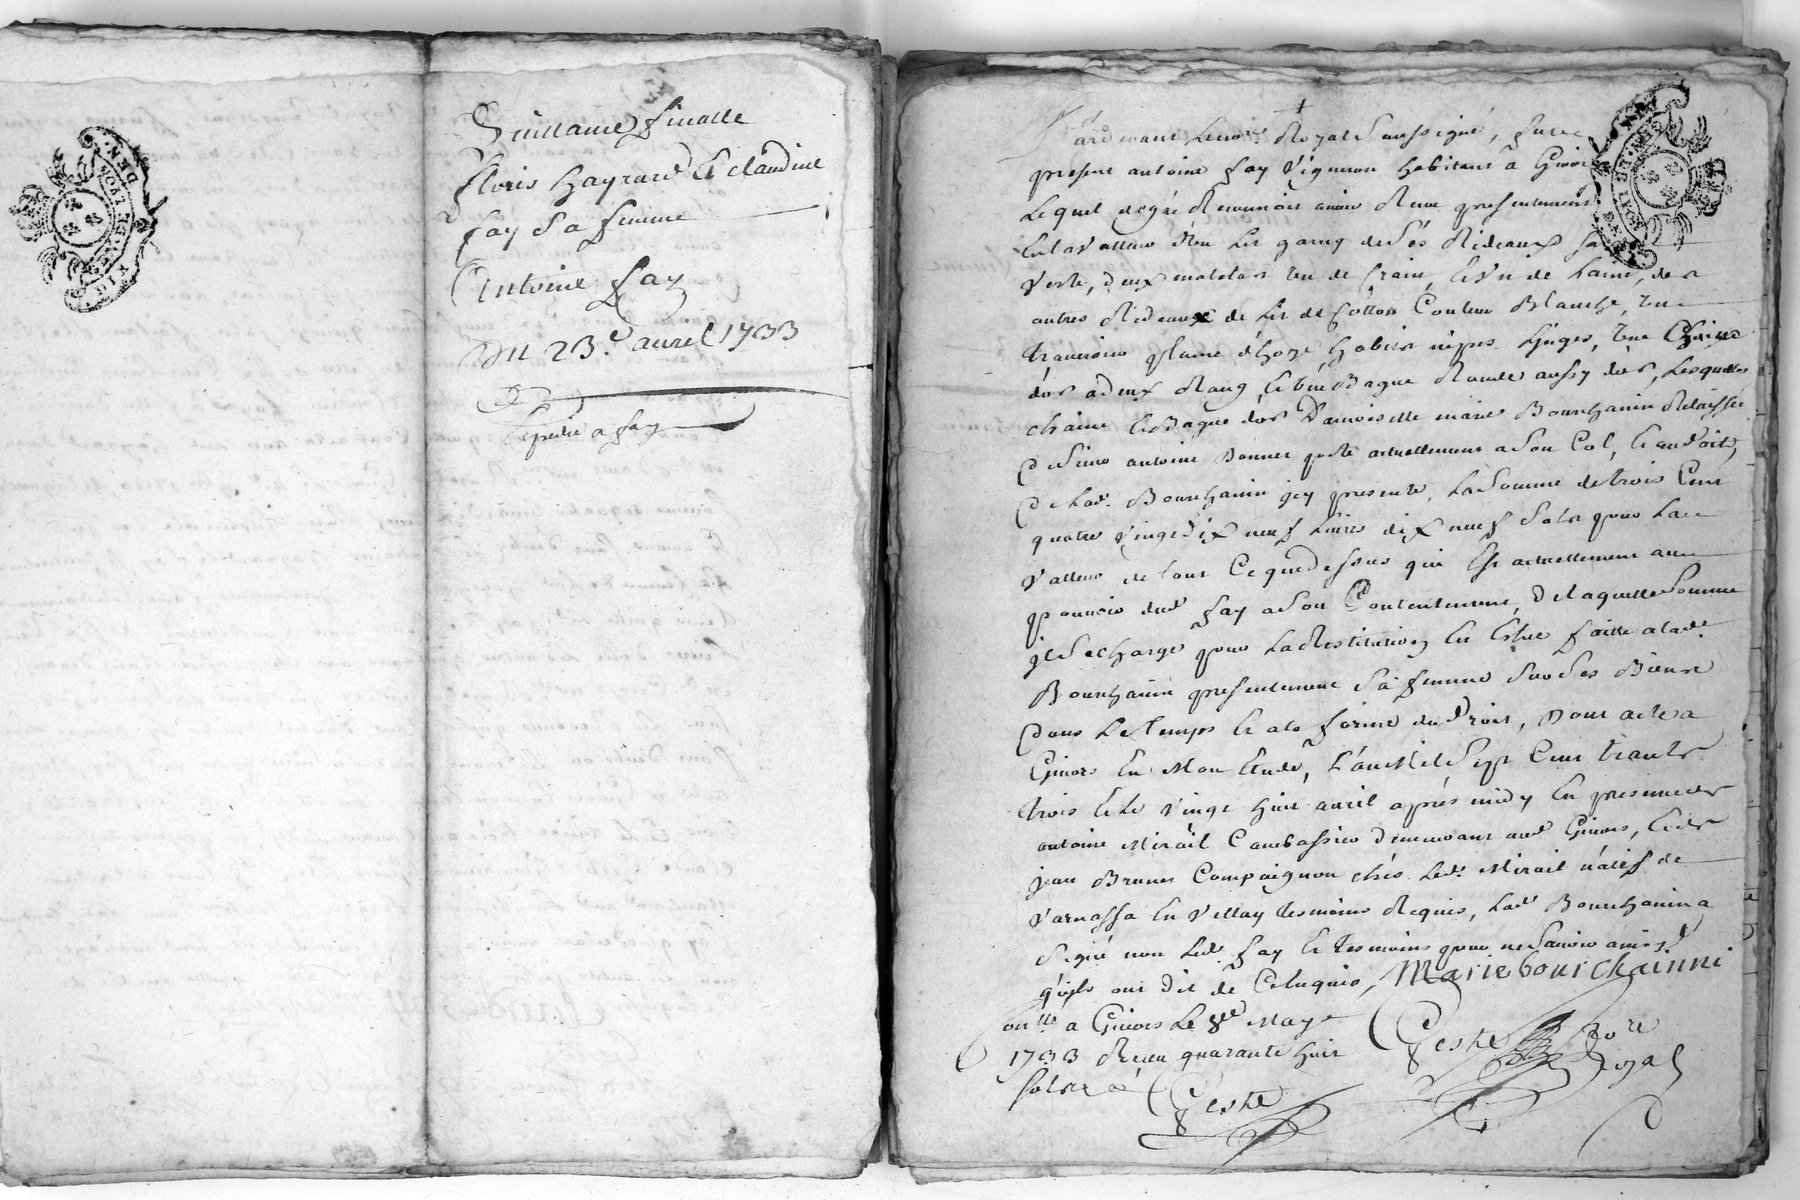 GEN. DE LYON
Quittance finalle
floris hayrard & claudine
fay Sa femme
Antoine fay
Du 23.e auril 1733
Expedié a fay
Pardeuant Le no.re Royal Soussigné, fut
present antoine fay Vigneron habitant a Giuors
Lequel de gré Reconnoit auoir Receu presentement
La Valleur d'un Lit garny de Ses Rideaux
Verte, deux mattelas un de Crain, & Vn de Laine, des
autres Rideaux de Lit de Cotton Couleur Blanche, une
trauersier plume habits nipes Linges, une Chaine
d'or a deux Rang, & une Bague Ronde aussy d'or, Lesquelles
chaine & Bague d'or Damoiselle marie Bourchanin Relaissée
de Sieur antoine Bonnet porte actuellement a Son Col, & au doit,
De Lad. Bourchanin jcy presente, La Somme de trois Cent
quatre Vingt dix neuf Liures dix neuf Sols pour La
Valleur de tout Ce que dessus qui Est actuellement au
pouuoir dud. fay a Son Contentement, de Laquelle Somme
jl Se Charge pour La Restitution En Estre faitte a lad.e
Bourchanin presentement Sa femme Sur Ses Biens
Dans Le temps & a la forme du Droit, Dont acte a
Giuors En Mon Etude, L'an Mil Sept Cent trante
trois & Le Vingt huit auril après midy En presence de
antoine Mirail Cambassier demeurant aud. Giuors, & de
jean Brunet Compaignon chés Led. Mirail natif de
Varnassa En Vellay tesmoins Requis, Lad. Bourchanin a
Signé non Led. fay & tesmoins pour ne Sauoir ainsy
qu'ils ont dit de Ce Enquis, Marie bourchainni
on.llé a Giuors Le 8.e May
1733 Receu quarante huit
Sols
Geste
Geste No.re
Royal